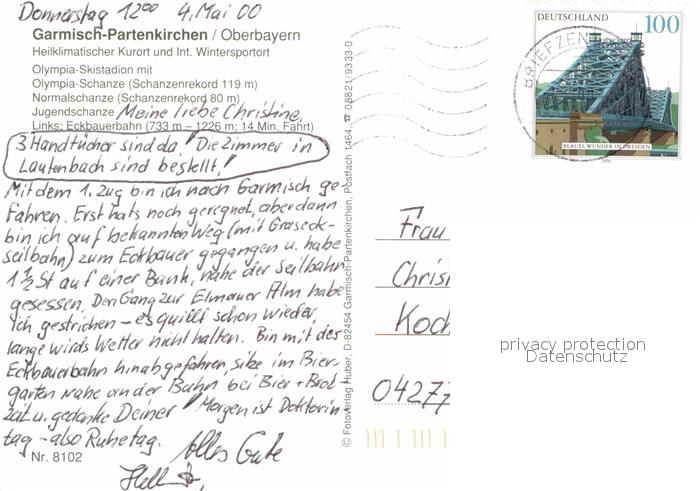 Donnerstag 12⁰⁰ 4. Mai 00
Garmisch-Partenkirchen / Oberbayern
Heilklimatischer Kurort und Int. Wintersportort
Olympia-Skistadion mit
Olympia-Schanze (Schanzenrekord 119 m)
Normalschanze (Schanzenrekord 80 m)
Jugendschanze
Meine liebe Christine,
Links: Eckbauerbahn (733 m – 1226 m; 14 Min. Fahrt)
3 Handtücher sind da! Die Zimmer in
Lautenbach sind bestellt!
Mit dem 1. Zug bin ich nach Garmisch ge-
fahren. Erst hats noch geregnet, aber dann
bin ich auf bekannten Weg (mit Graseck-
seilbahn) zum Eckbauer gegangen u. habe
1 ½ St auf einer Bank, nahe der Seilbahn
gesessen. Den Gang zur Elmauer Alm habe
ich gestrichen – es quillt schon wieder,
lange wirds Wetter nicht halten. Bin mit der
Eckbauerbahn hinabgefahren, sitze im Bier-
garten nahe an der Bahn bei Bier + Brot-
zeit u. gedenke Deiner! Morgen ist Doktorin-
tag – also Ruhetag.
Alles Gute
Nr. 8102
© Fotoverlag Huber, D-82454 Garmisch-Partenkirchen, Postfach 1464, ☎ 08821/9333-0
BRIEFZEN
DEUTSCHLAND 100
BLAUES WUNDER IN DRESDEN
2000
Frau
Chris
Koch
04277
privacy protection
Datenschutz